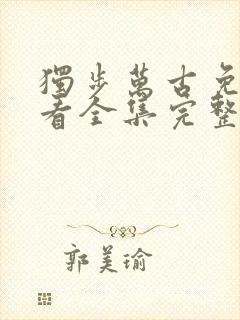 獨步萬古免
看全集完整
郭美瑜